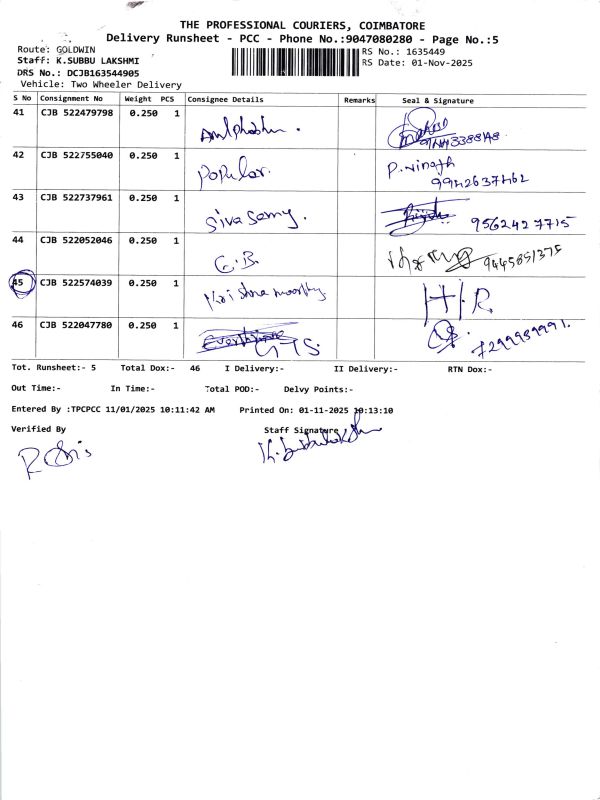 THE PROFESSIONAL COURIERS, COIMBATORE
Delivery Runsheet - PCC - Phone No.:9047080280 - Page No.:5
Route: GOLDWIN
RS No.: 1635449
Staff: K.SUBBU LAKSHMI
RS Date: 01-Nov-2025
DRS No.: DCJB163544905
Vehicle: Two Wheeler Delivery
S No Consignment No Weight PCS Consignee Details Remarks Seal & Signature
41 CJB 522479798 0.250 1
42 CJB 522755040 0.250 1 Popular. P. Vinoth
9942637462
43 CJB 522737961 0.250 1 Sivasamy. 9562427715
44 CJB 522052046 0.250 1 G.B. 9445851375
45 CJB 522574039 0.250 1 Krishna moorthy H.R
46 CJB 522047780 0.250 1 GTS. 7299939991.
Tot. Runsheet:- 5 Total Dox:- 46 I Delivery:- II Delivery:- RTN Dox:-
Out Time:- In Time:- Total POD:- Delvy Points:-
Entered By :TPCPCC 11/01/2025 10:11:42 AM Printed On: 01-11-2025 10:13:10
Verified By Staff Signature